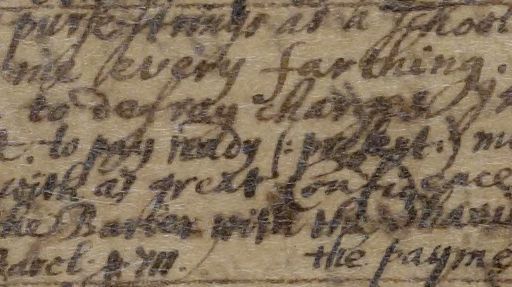 purse strings as a school
me every farthing.
to defray charges
t. to pay ready (: prest.) m
with as great Confidence
the Barber with the
the payme